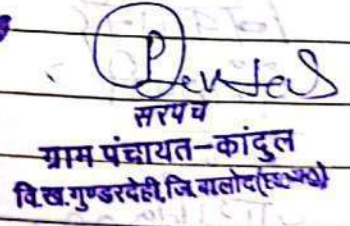 सरपंच
ग्राम पंचायत-कांदुल
वि.ख.गुण्डरदेही,जि.बालोद(छ.ग.)